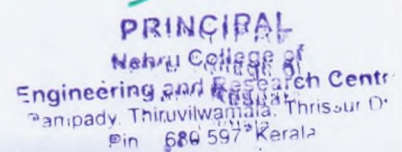 PRINCIPAL
Nehru College of
Engineering and Research Centr
Pampady, Thiruvilwamala, Thrissur D
Pin 680 597 Kerala